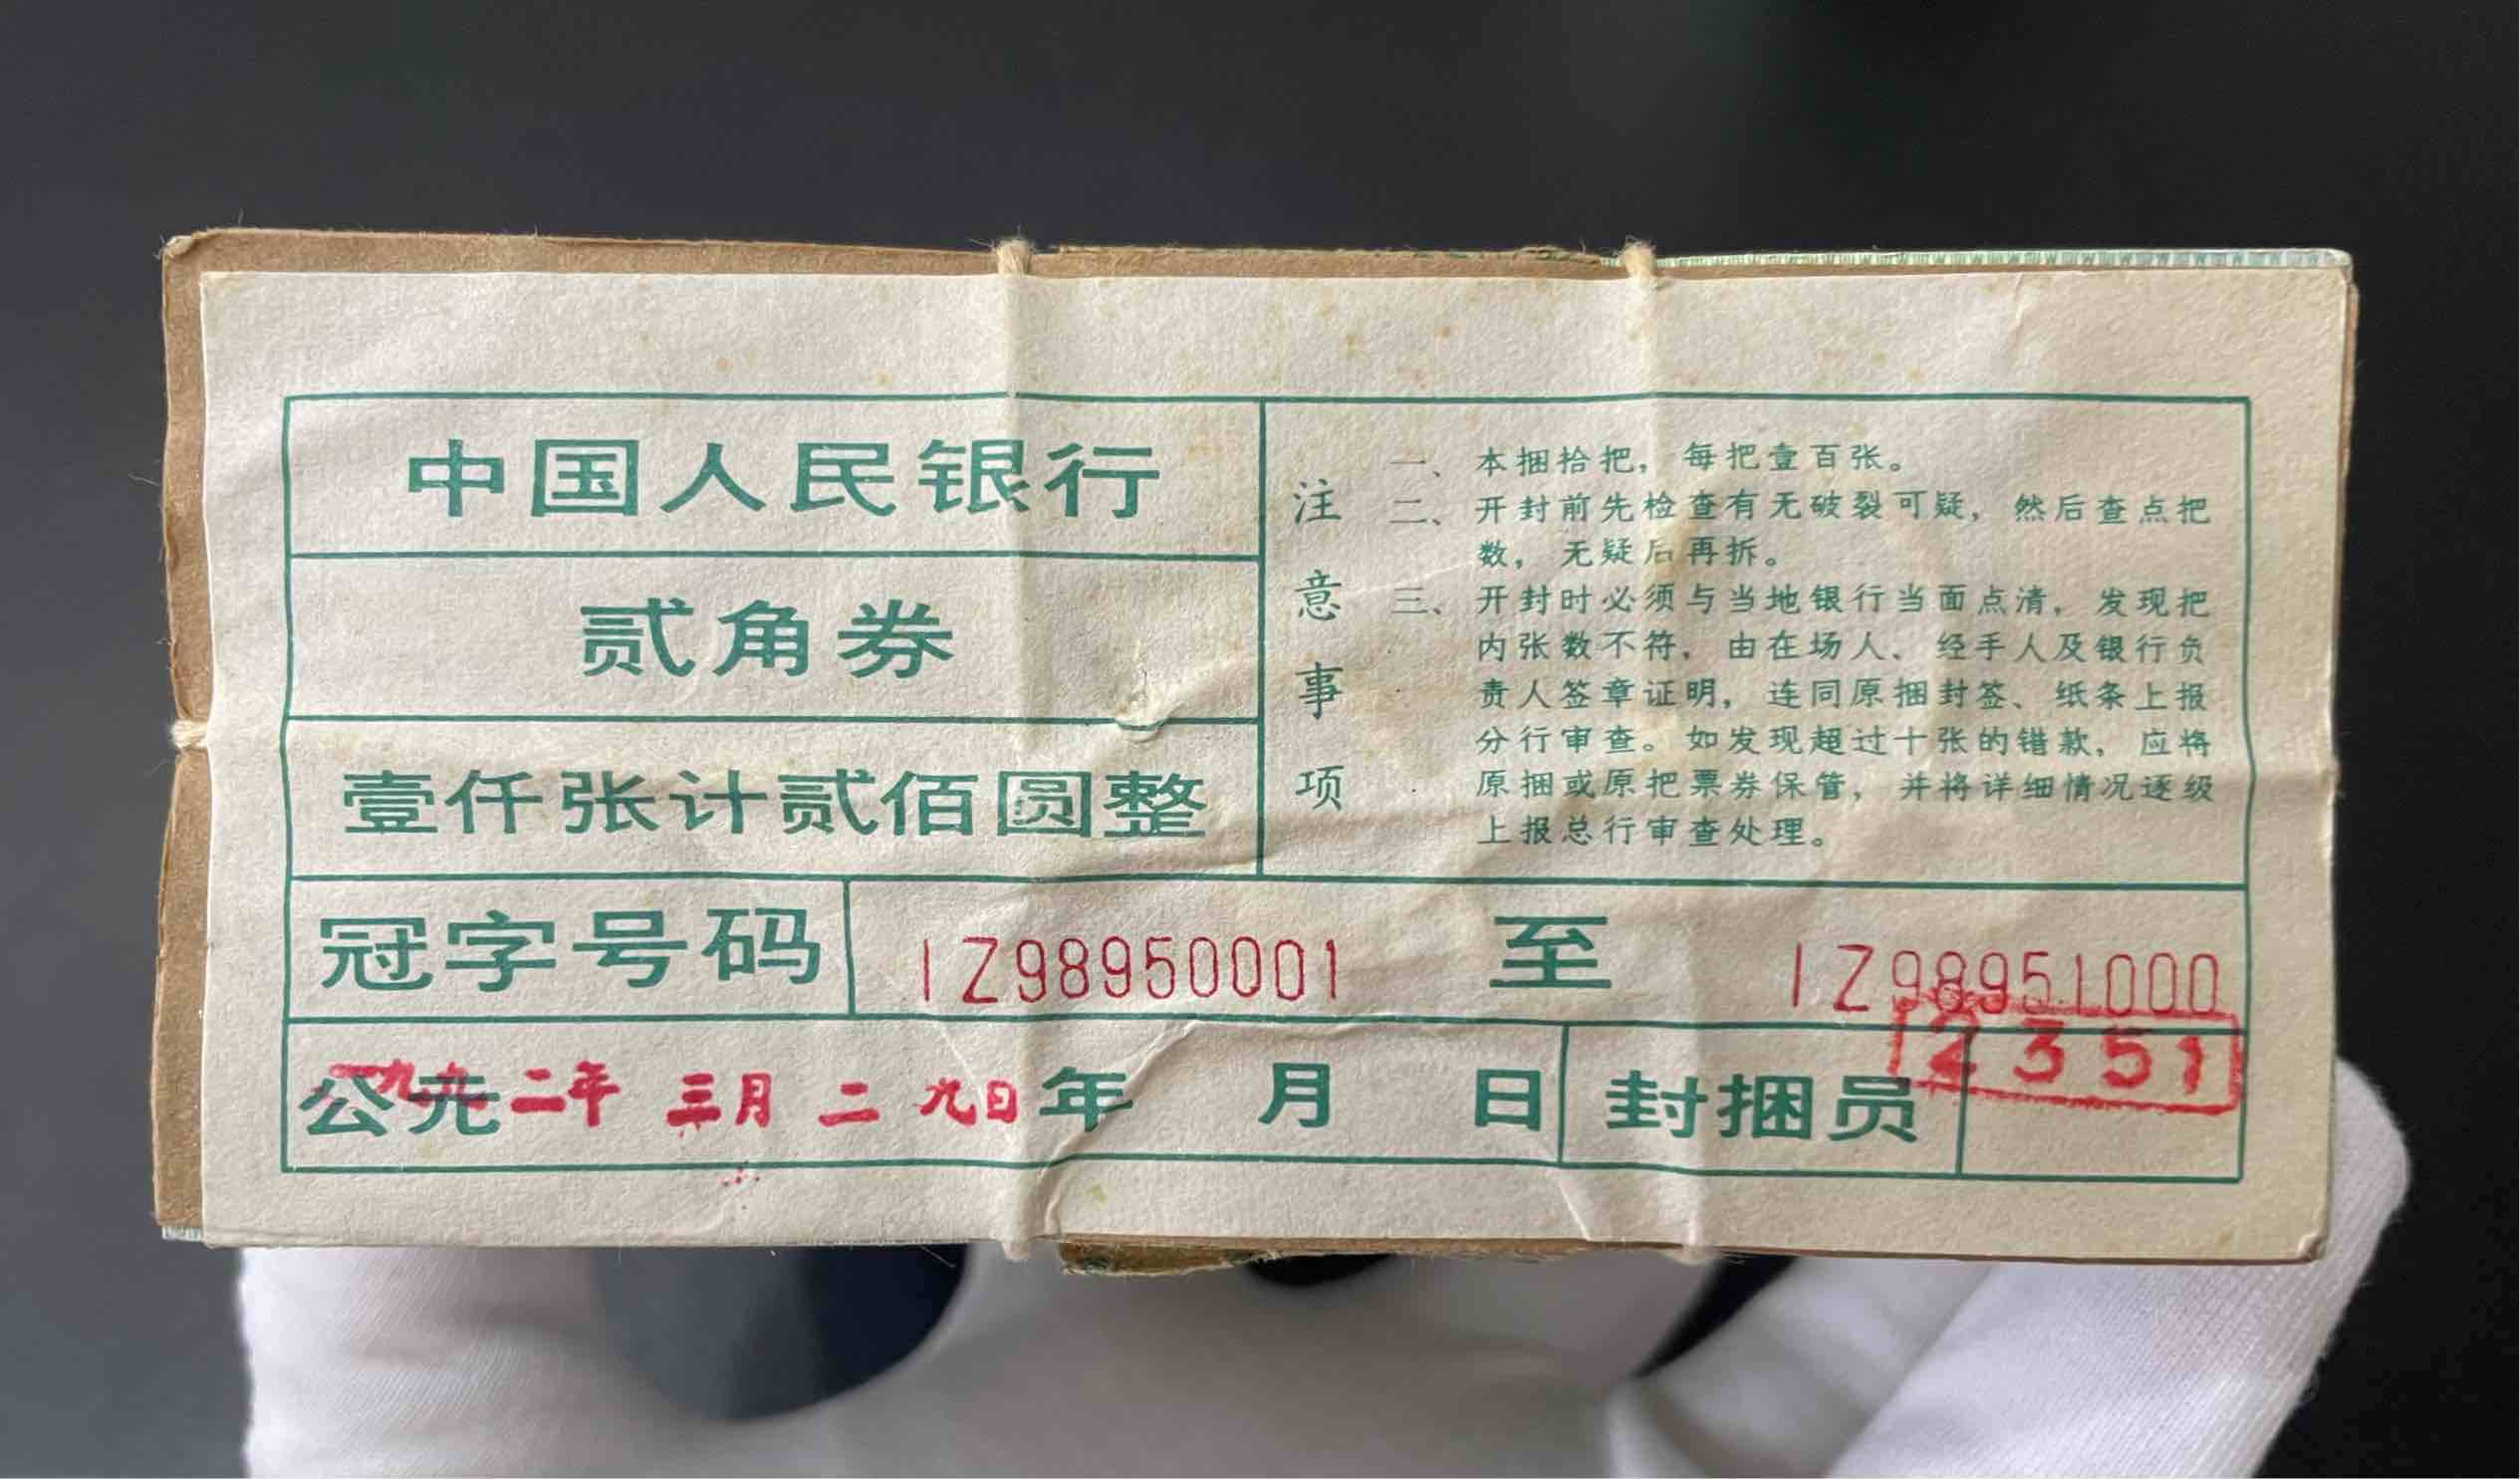 中国人民银行
贰角券
壹仟张计贰佰圆整
注意事项
一、本捆拾把，每把壹百张。
二、开封前先检查有无破裂可疑，然后查点把
数，无疑后再拆。
三、开封时必须与当地银行当面点清，发现把
内张数不符，由在场人、经手人及银行负
责人签章证明，连同原捆封签、纸条上报
分行审查。如发现超过十张的错款，应将
原捆或原把票券保管，并将详细情况逐级
上报总行审查处理。
冠字号码 IZ98950001 至 IZ98951000
公元 一九九二年 三月 二九日 年 月 日 封捆员 2351